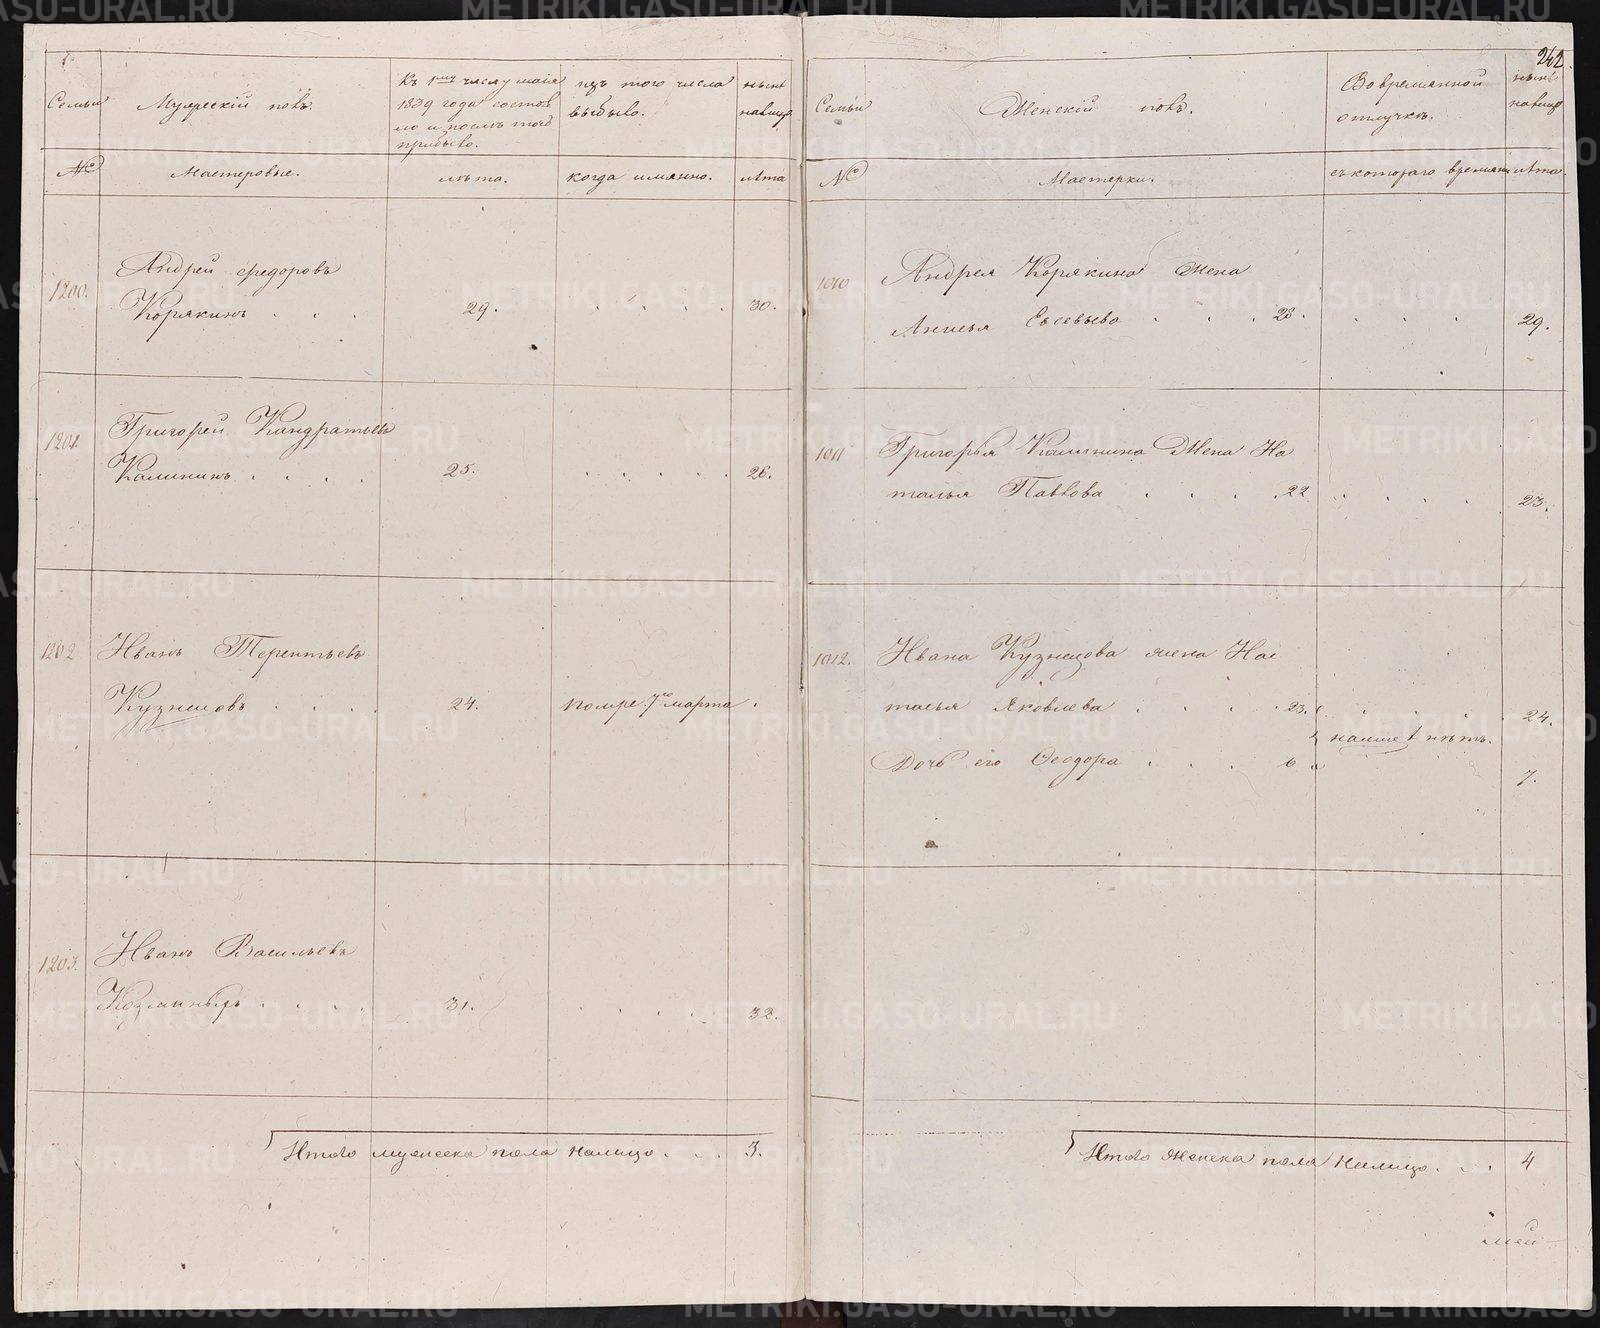 242.
Семьи
Мужескій полъ.
Къ 1му числу маія
1839 года состоя
ло и послѣ того
прибыло.
изъ того числа
выбыло.
нынѣ
налицо
№
Мастеровые.
лѣта.
когда имянно.
лѣта
1200.
Андрей Ѳедоровъ
Корякинъ . . . 29. . . . . . 30.
1201.
Григорей Кандратьевъ
Калининъ . . . . 25. . . . . . 26.
1202
Иванъ Терентьевъ
Кузнецовъ . . . . 24. помре 7го марта .
1203.
Иванъ Васильевъ
31. . . . . 32.
Итого мужеска пола налицо . . . 3.
Семьи
Женскій полъ.
Во временной
отлучкѣ.
нынѣ
налицо
№
Мастерки.
съ котораго времяни
лѣта.
1010
Андрея Корякина жена
Анисья Евсевьева . . . 28. . . . 29.
1011
Григорья Калинина Жена На
талья Павлова . . . . 22 . . . . . 23.
1012.
Ивана Кузнецова жена Нас
тасья Яковлева . . . . 23. . . . . 24.
Дочь его Ѳеодора . . . 6 7.
Итого Женска пола налицо . . . 4
METRIKI.GASO-URAL.RU